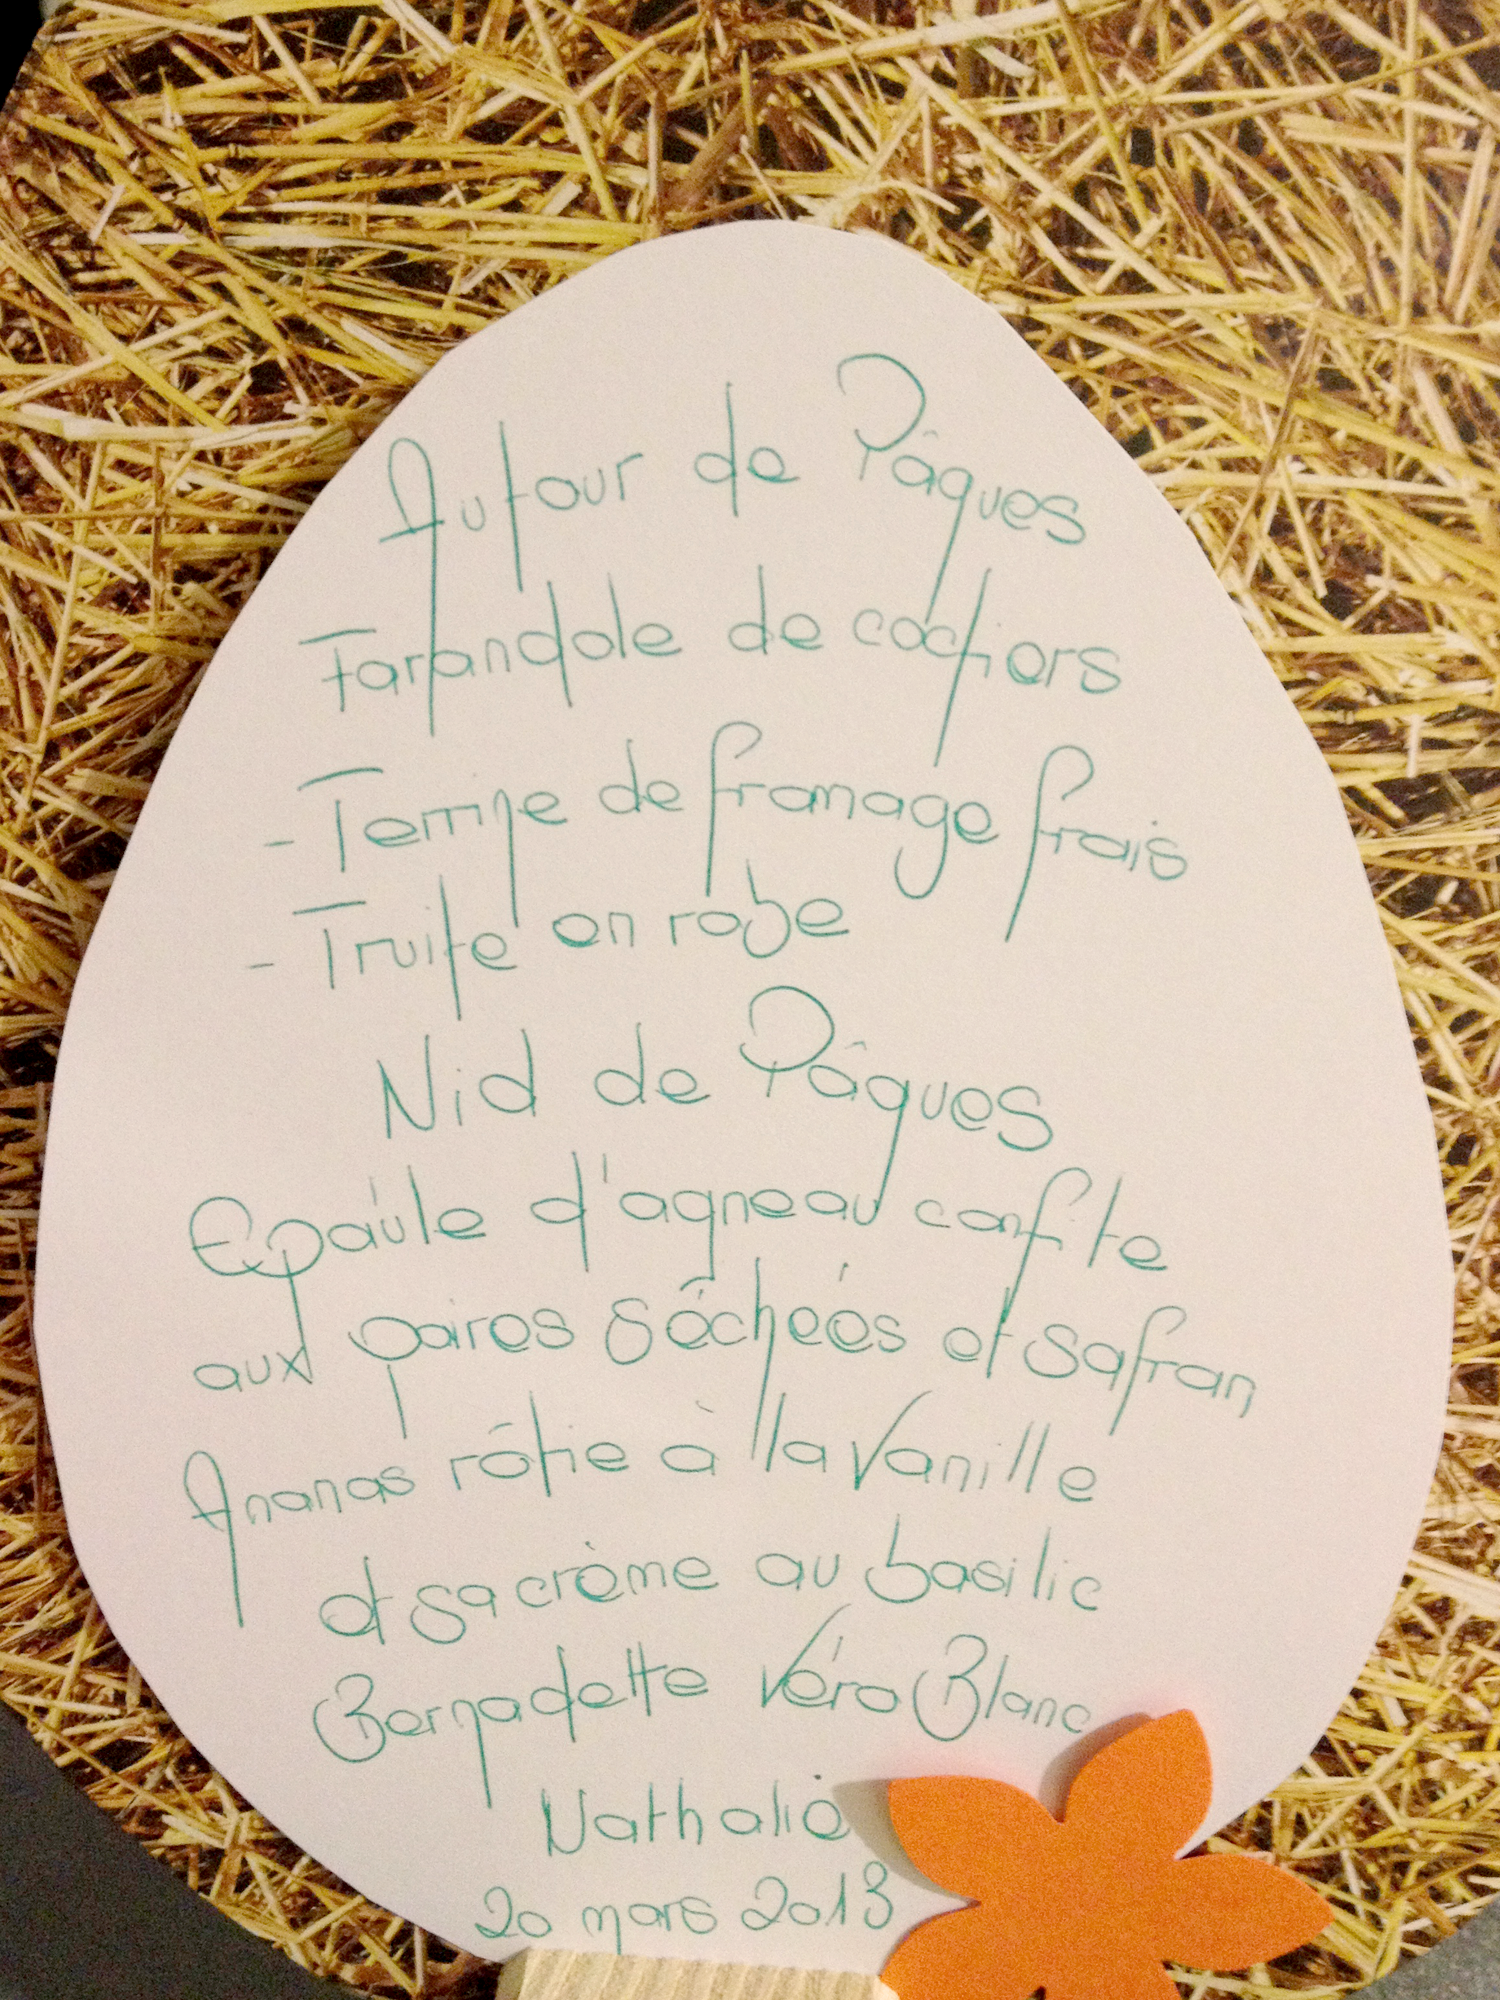 Autour de Pâques
Farandole de cochers
- Tempe de fromage frais
- Truite en robe
Nid de Pâques
Epaule d'agneau confite
aux poires séchées et safran
Ananas rôtie à la vanille
et sa crème au basilic
Bernadette Véro Blanc
Nathalie
20 mars 2013